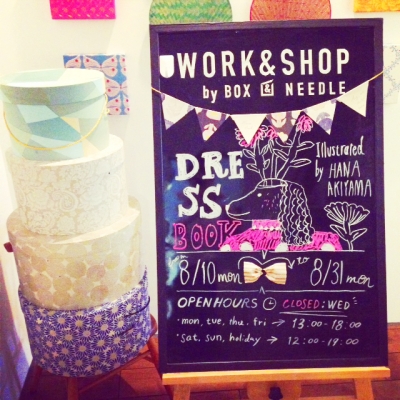 WORK&SHOP
by BOX & NEEDLE
DRE
SS
BOOK
Illustrated
by HANA
AKIYAMA
8/10 mon to 8/31 mon
OPEN HOURS CLOSED: WED
・mon, tue, thu. fri → 13:00-18:00
・sat, sun, holiday → 12:00-19:00